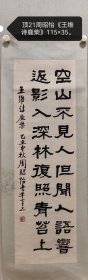 顶21周昭怡《王维
诗鹿柴》115×35。
空山不見人但聞人語響
返影入深林復照青苔上
王維詩鹿柴 乙丑中秋周昭怡